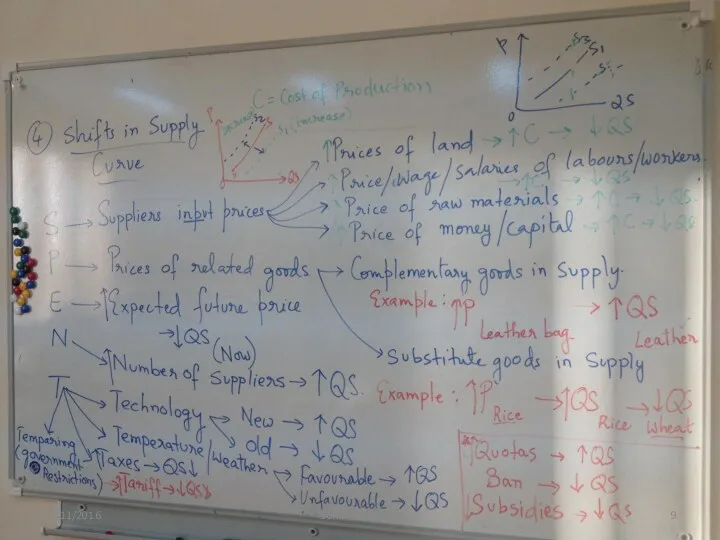 P
S2 S S1
O QS
C = Cost of Production
④ Shifts in Supply Curve
P
S2 S
S1 (increase)
O QS
↑Prices of land → ↑C → ↓QS
↑Price/Wage/Salaries of labours/workers
→ ↑C → ↓QS
S → Suppliers input prices
↑Price of raw materials → ↑C → ↓QS
↑Price of money/capital → ↑C → ↓QS
P → Prices of related goods → Complementary goods in Supply.
Example: ↑P → ↑QS
Leather bag Leather
E → ↑Expected future price
→ ↓QS (Now)
Substitute goods in Supply
Example: ↑P → ↑QS → ↓QS
Rice Rice wheat
N → ↑Number of Suppliers → ↑QS.
T → Technology → New → ↑QS
Old → ↓QS
Temperature/Weather → Favourable → ↑QS
Unfavourable → ↓QS
↑Taxes → QS↓
Tempering (government Restrictions) → ↑Tariff → ↓QS
↑Quotas → ↑QS
Ban → ↓QS
↓Subsidies → ↓QS
11/2016
9